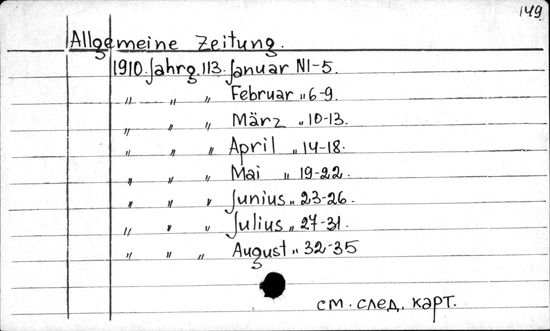 149
Allgemeine Zeitung.
1910. Jahrg. 113. Januar N1-5.
" " " Februar " 6-9.
" " " März " 10-13.
" " " April " 14-18.
" " " Mai " 19-22.
" " " Junius " 23-26.
" " " Julius " 27-31.
" " " August " 32-35
см. след. карт.